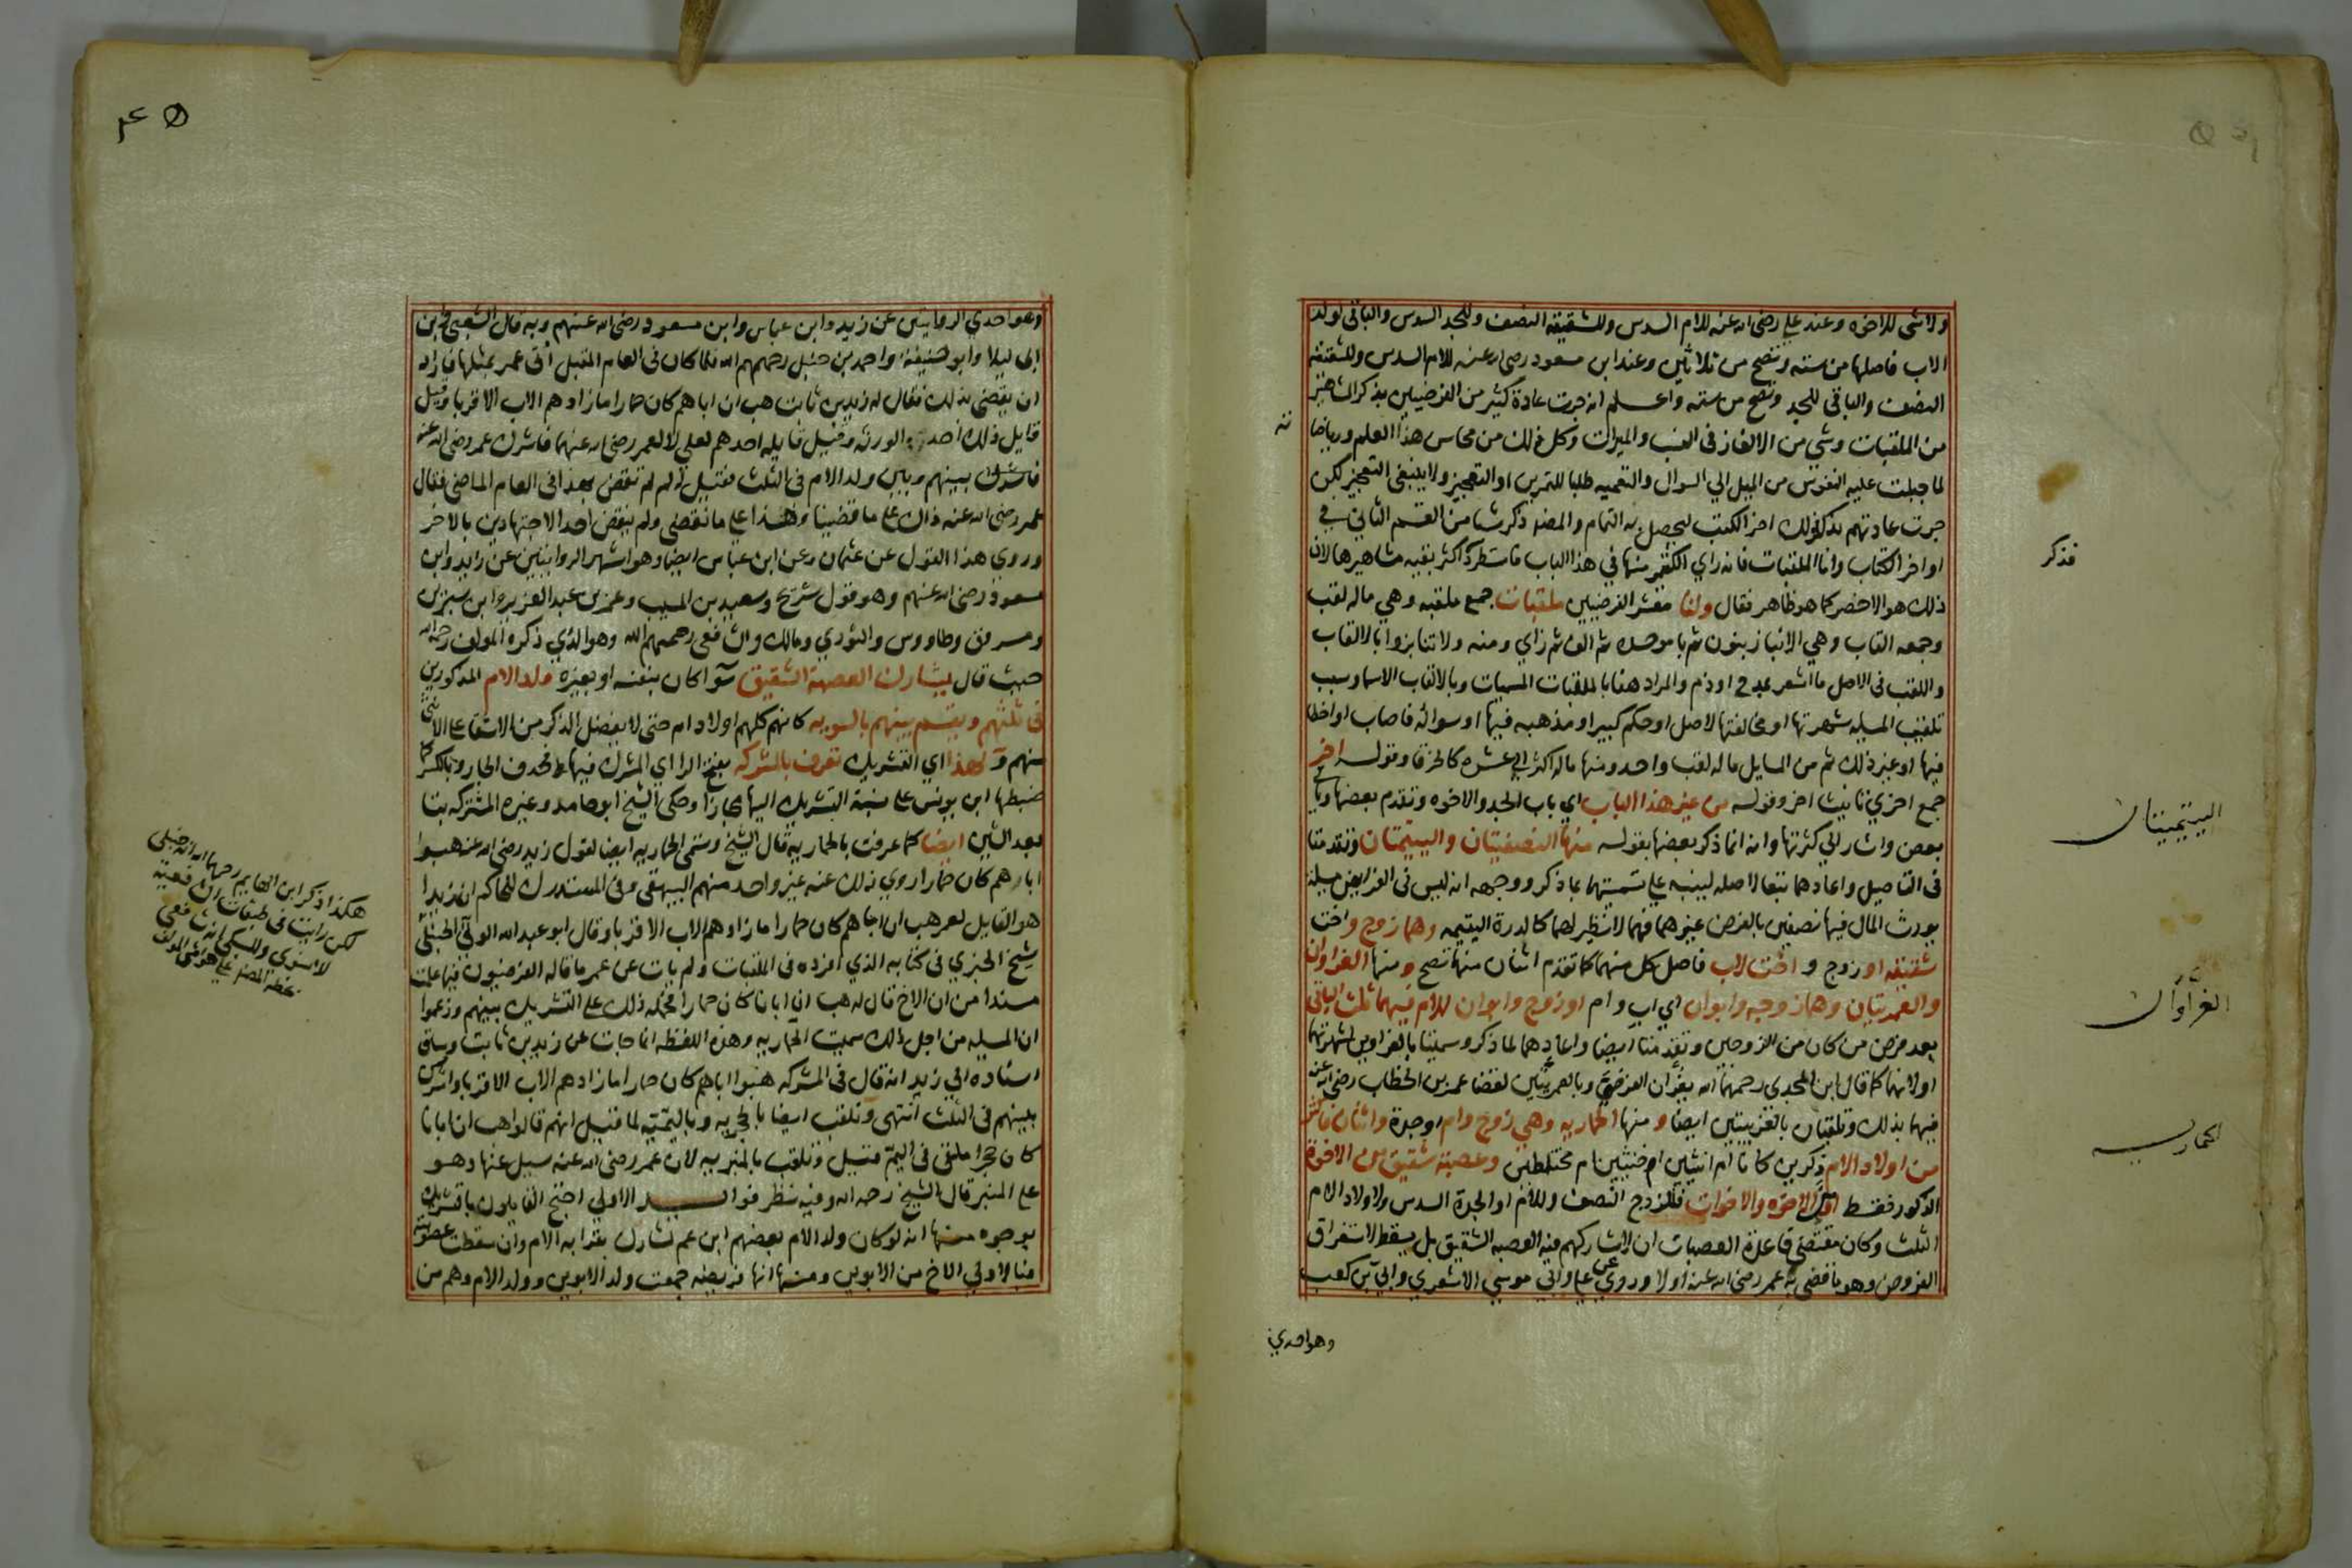 ولاشى للاخوه وعند علي رضى الله عنه للام السدس وللشقيقه النصف وللجد السدس والباقى لولد
الاب فاصلها من سته وتصح من ثلاثين وعند ابن مسعود رضى الله عنه للام السدس وللشقيقه
النصف والباقى للجد وتصح من سته واعلم انه جرت عادة كثير من الفرضيين بذكر
من الملقبات وشي من الالغاز فى النسب والميراث وكل ذلك من محاسن هذا العلم ورياضا
لما جبلت عليه النفوس من الميل الي السوال والتعميه طلبا للتمرين او التعجيز ولا ينبغى التعجيز لكن
جرت عادتهم بذكر ذلك اخر الكتب ليحصل به التمام والمصنف ذكر شيا من القسم الثاني في
اواخر الكتاب واما الملقبات فانه راي الكثير منها في هذا الباب فاستطرد اكثر بقيه مشاهيرها لان
ذلك هو الاخصر كما هو ظاهر فقال ولنا معشر الفرضيين ملقبات جمع ملقبه وهي ماله لقب
وجمعه القاب وهي الانباز بنون ثم با موحده ثم الف ثم زاي ومنه ولا تنابزوا بالالقاب
واللقب فى الاصل ما اشعر بمدح او ذم والمراد هنا بالملقبات المسميات وبالالقاب الاسما وسبب
تلقيب المسيله شهرتها او مخالفتها لاصل او حكم كبير او مذهبه فيها او سواله فاصاب او اخطا
فيها او غير ذلك ثم من المسايل ماله لقب واحد ومنها ماله اكثر الي عشره كالخرقا وقوله اخر
جمع اخري تانيث اخر وقوله من غير هذا الباب اي باب الجد والاخوه وتقدم بعضها وياتي
بعض واشار الي كثرتها وانه انما ذكر بعضها بقوله منها النصفيتان واليتيمتان وتقدمتا
فى التاصيل واعادهما تبعا لاصله لينبه على تسميتهما بما ذكر ووجهه انه ليس فى الفرايض مسيلة
يورث المال فيها نصفين بالفرض غيرهما فهما لا نظير لهما كالدرة اليتيمه وهما زوج واخت
شقيقه او زوج واخت لاب فاصل كل منهما كما تقدم اثنان منها تصح ومنها الغراوان
والعمريتان وهما زوجه وابوان اي اب وام او زوج وابوان للام فيهما ثلث الباقى
بعد فرض من كان من الزوجين وتقدمتا ايضا واعادهما لما ذكر وسميتا بالغراوين لشهرتهما
اولانهما كما قال ابن المجدى رحمه الله يغران الفرضي وبالعمريتين لقضا عمر بن الخطاب رضى الله عنه
فيها بذلك وتلقبان بالغريبتين ايضا ومنها الحماريه وهي زوج وام او جدة واثنان فاكثر
من اولاد الام ذكرين كانا ام انثيين ام خنثيين ام مختلطين وعصبة شقيق من الاخوة
الذكور فقط او الاخوه والاخوات فللزوج النصف وللام او الجدة السدس ولاولاد الام
الثلث وكان مقتضى قاعدة العصبات ان لا يشاركهم فيه العصبه الشقيق بل يسقط لاستغراق
الفروض وهو ما قضى به عمر رضى الله عنه اولا وروي عن علي وابي موسي الاشعري وابي بن كعب
وهو احدي
فذكر
اليتيمتان
الغراوان
الحماريه
وهو احدي الروايتين عن زيد وابن عباس وابن مسعود رضى الله عنهم وبه قال الشعبي وابن
ابى ليلا وابو حنيفة واحمد بن حنبل رحمهم الله فلما كان فى العام المقبل أتى عمر بمثلها فاراد
ان يقضى بذلك فقال له زيد بن ثابت هب ان اباهم كان حمارا مازادهم الاب الا قربا وقيل
قايل ذلك احد الورثه وقيل قايله احدهم لعلي لا لعمر رضى الله عنهما فاشرك عمر رضى الله عنه
فاشرك بينهم وبين ولد الام فى الثلث فقيل له لم لم تقض بهذا فى العام الماضى فقال
عمر رضى الله عنه ذاك على ما قضينا وهذا علي ما نقضى ولم ينقض احد الاجتهادين بالاخر
وروي هذا القول عن عثمان وعن ابن عباس ايضا وهو اشهر الروايتين عن زيد وابن
مسعود رضى الله عنهم وهو قول شريح وسعيد بن المسيب وعمر بن عبد العزيز وابن سيرين
ومسروق وطاووس والثوري ومالك والشافعى رحمهم الله وهو الذي ذكره المولف رحمه الله
حيث قال يشارك العصبة الشقيق سوآ كان بنفسه او بغيره ولد الام المذكورين
فى ثلثهم ويقسم بينهم بالسويه كانهم كلهم اولاد ام حتى لا يفضل الذكر من الاشقا على الانثى
منهم ولهذا اي التشريك تعرف بالمشركه بفتح الرا اي المشرك فيها فحذف الجار وبالكسر كما
ضبطها ابن يونس على نسبة التشريك اليها مجازا وحكى الشيخ ابو حامد وغيره المشتركه بتا
بعد الشين ايضا كما عرفت بالحماريه قال الشيخ وتسمى الحماريه ايضا لقول زيد رضى الله عنه هبوا
اباهم كان حمارا روي ذلك عنه غير واحد منهم البيهقى وفى المستدرك للحاكم ان زيدا
هو القايل لعمر هب ان اباهم كان حمارا مازادهم الاب الا قربا وقال ابو عبد الله الونى الحنبلى
شيخ الخبري فى كتابه الذي افرده فى الملقبات ولم يات عن عمر ما قاله الفرضيون فيما علمت
مسندا من ان الاخ قال له هب ان ابانا كان حمارا فحمله ذلك على التشريك بينهم وزعموا
ان المسيله من اجل ذلك سميت الحماريه وهذه اللفظه انما جات عن زيد بن ثابت وساق
اسناده الى زيد انه قال فى المشركه هبوا اباهم كان حمارا مازادهم الاب الا قربا واشرك
بينهم فى الثلث انتهى وتلقب ايضا بالحجريه وباليميه لما قيل انهم قالوا هب ان ابانا
كان حجرا ملقى فى اليم قيل وتلقب بالمنبريه لان عمر رضى الله عنه سيل عنها وهو
على المنبر قال الشيخ رحمه الله وفيه نظر فوايد الاولي احتج القايلون بالتشريك
بوجوه منها انه لو كان ولد الام بعضهم ابن عم تشارك بقرابه الام وان سقطت عصوبته
فبالاولي الاخ من الابوين ومنها انها فريضه جمعت ولد الابوين وولد الام وهم من
هكذا ذكر ابن الهايم رحمه الله انه حنبلى
لكن رايت فى طبقات الشافعية
لاسنوى وللسبكى انه شافعى
بخط المصنف على هوامش المولف